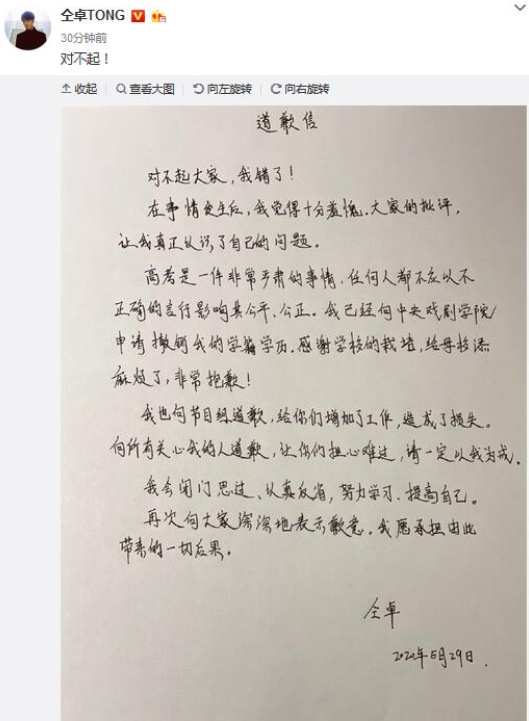 仝卓TONG
30分钟前
对不起！
收起 查看大图 向左旋转 向右旋转
道歉信
对不起大家，我错了！
在事情发生后，我觉得十分羞愧。大家的批评，
让我真正认识了自己的问题。
高考是一件非常严肃的事情，任何人都不应以不
正确的言行影响其公平、公正。我已经向中央戏剧学院
申请撤销我的学籍学历。感谢学校的栽培，给母校添
麻烦了，非常抱歉！
我也向节目组道歉，给你们增加了工作，造成了损失。
向所有关心我的人道歉，让你们担心难过，请一定以我为戒。
我会闭门思过、认真反省，努力学习、提高自己。
再次向大家深深地表示歉意。我愿承担由此
带来的一切后果。
仝卓
2020年5月29日.